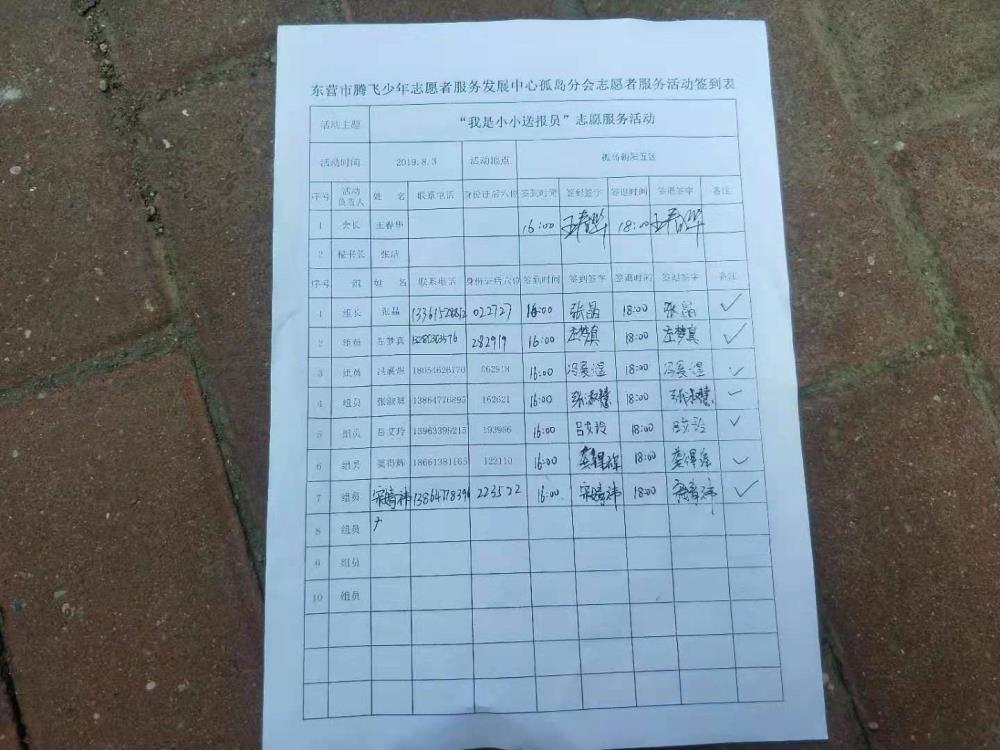 东营市腾飞少年志愿者服务发展中心孤岛分会志愿者服务活动签到表
活动主题 “我是小小送报员”志愿服务活动
活动时间 2019.8.3 活动地点 孤岛朝阳五区
序号 活动负责人 姓 名 联系电话 身份证后六位 签到时间 签到签字 签退时间 签退签字 备注
1 会长 王春华 16:00 王春华 18:00 王春华
2 秘书长 张洁
序号 组 姓 名 联系电话 身份证后六位 签到时间 签到签字 签退时间 签退签字 备注
1 组长 张晶 022727 16:00 张晶 18:00 张晶 ✓
2 组员 左梦真 282919 16:00 左梦真 18:00 左梦真 ✓
3 组员 冯展滢 18054626770 16:00 冯展滢 18:00 冯展滢 ✓
4 组员 张淑慧 13864776895 162621 16:00 张淑慧 18:00 张淑慧 ✓
5 组员 吕文玲 13963395215 193966 16:00 吕文玲 18:00 吕文玲 ✓
6 组员 18661381165 122110 16:00 18:00 ✓
7 组员 223522 16:00 18:00 ✓
8 组员
9 组员
10 组员